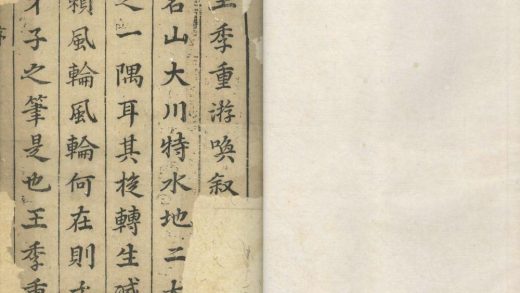 王季重游喚叙
名山大川特水地二大
之一隅耳其梭轉生滅
賴風輪風輪何在則才
才子之筆是也王季重